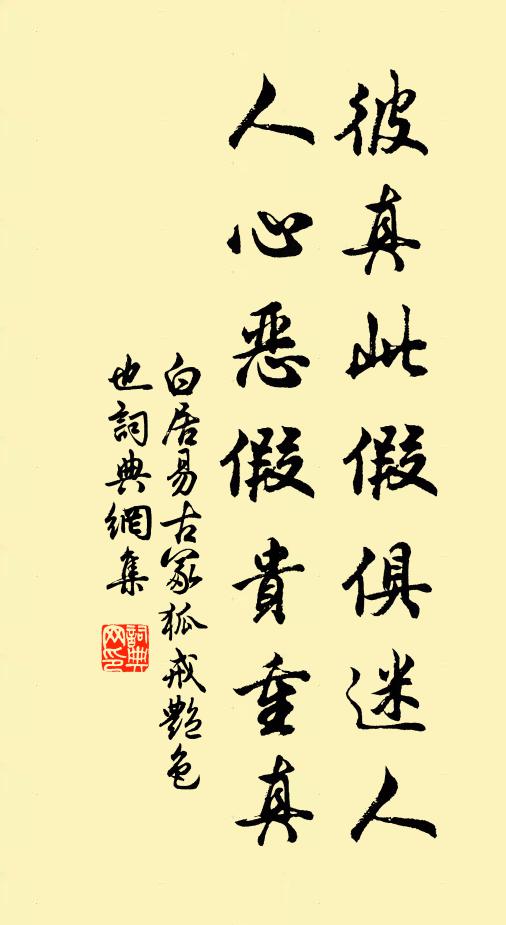 彼真此假俱迷人
人心恶假貴重真
白居易古冢狐戒艷色
也詞典網集
詞典
网印